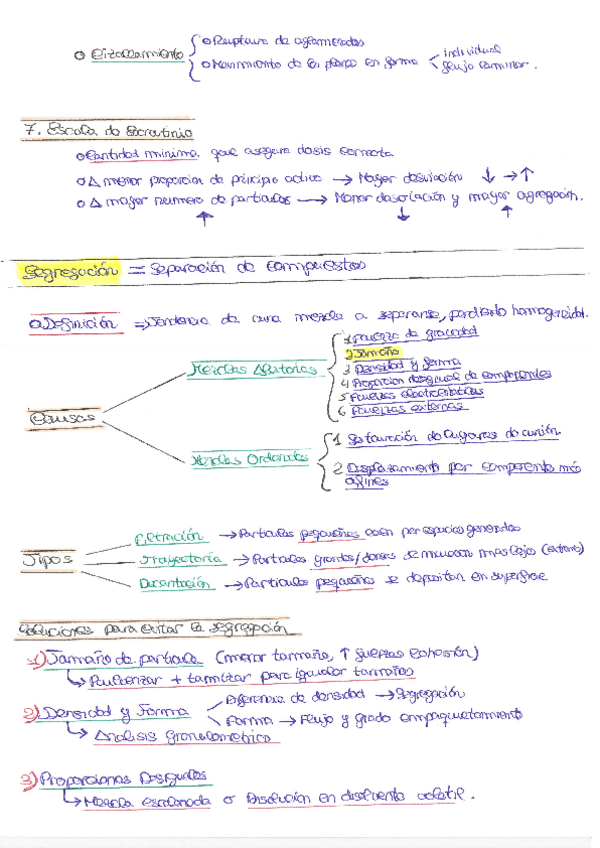 o Cizallamiento
o Ruptura de aglomerados
o Movimiento de la planos en forma
individual
flujo laminar.
7. Escala de Escrutinio
o Cantidad mínima que asegura dosis correcta
o Δ menor proporcion de principio activo → Mayor desviación ↓ → ↑
o Δ mayor numero de particulas → Menor desviación y mayor agregación.
↑ ↓ ↑
Segregación = Separación de compuestos
o Definición ⇒ Tendencia de una mezcla a separarse, perdiendo homogeneidad.
Causas
Mezclas Aleatorias
1 Fuerza de gravedad
2 Tamaño
3 Densidad y forma
4 Proporcion desigual de componentes
5 Fuerzas electrostaticas
6 Fuerzas externas
Mezclas Ordenadas
1 Saturación de lugares de unión.
2 Desplazamiento por componente más
afines
Tipos
Filtración → Particulas pequeñas caen por espacios generados
Trayectoria → Particulas grandes/densas se mueven mas lejos (extremo)
Decantación → Particulas pequeñas se depositan en superficie
Soluciones para evitar la segregación
1) Tamaño de particula (menor tamaño, ↑ fuerzas cohesión)
↳ Pulverizar + tamizar para igualar tamaños
2) Densidad y Forma
Diferencia de densidad → Segregación
Forma → Flujo y grado empaquetamiento
↳ Análisis Granulometrico
3) Proporciones Desiguales
↳ Mezcla escalonada o Disolución en disolvente volatil.